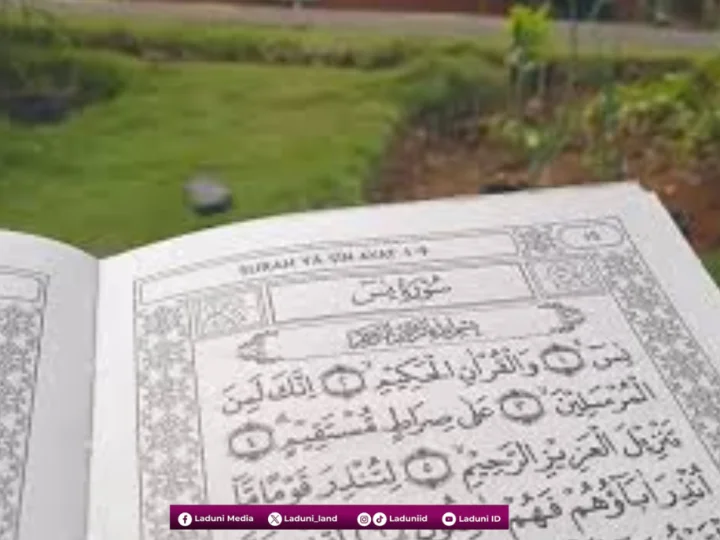 SURAH YA SIN AYAT 1-9
سُورَةُ يٰسٓ
يٰسٓ ۝١ وَالْقُرْاٰنِ الْحَكِيْمِ ۝٢ اِنَّكَ لَمِنَ
الْمُرْسَلِيْنَ ۝٣ عَلٰى صِرَاطٍ مُّسْتَقِيْمٍ ۝٤
تَنْزِيْلَ الْعَزِيْزِ الرَّحِيْمِ ۝٥ لِتُنْذِرَ قَوْمًا مَّآ
اُنْذِرَ اٰبَاۤؤُهُمْ فَهُمْ
Laduni Media Laduni_land Laduniid Laduni ID